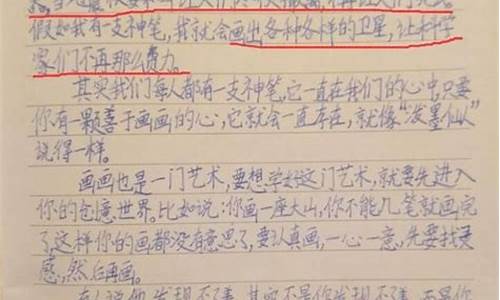 假如我有一支神笔,我就会画出各种各样的卫星,让科学
家们不再那么费力。
其实我们每人都有一支神笔,它一直在我们的心中,只要
你有一颗喜于画画的心,它就会一直存在,就像“泼墨仙人”
说得一样。
画画也是一门艺术,要想学好这门艺术,就要先进入
你的创意世界。比如说:你画一座大山,你不能几笔就画完
了,这样你的画都没有意思了,要认真画,一心一意,先要找灵
感,然后再画。